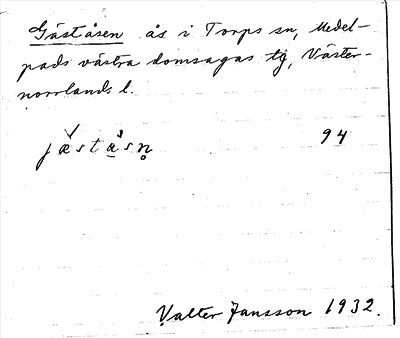 Gåståsen ås i Torps sn, Medel-
pads västra domsagas tg, Väster-
norrlands l.
jæståsn̥ 94
Valter Jansson 1932.